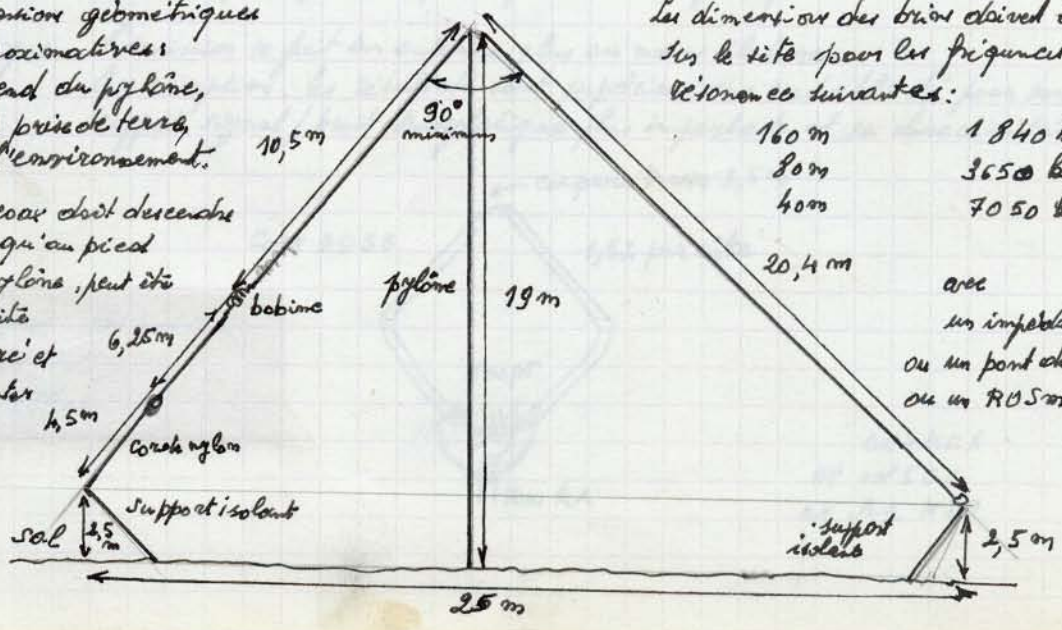 sions géométriques
oximatives:
end du pylône,
prise de terre,
l'environnement.
coax doit descendre
qu'au pied
ylône, peut été
ité
ré et
ter
Les dimensions des brins doivent
sur le site pour les fréquences
résonences suivantes:
160 m 1 840
80 m 3650
40 m 7050
avec
un impéd
ou un pont d
ou un ROSm
90°
minimum
10,5 m
bobine
6,25 m
4,5 m
corde nylon
pylône
19 m
20,4 m
support isolant
sol
2,5 m
support
isolant
2,5 m
25 m